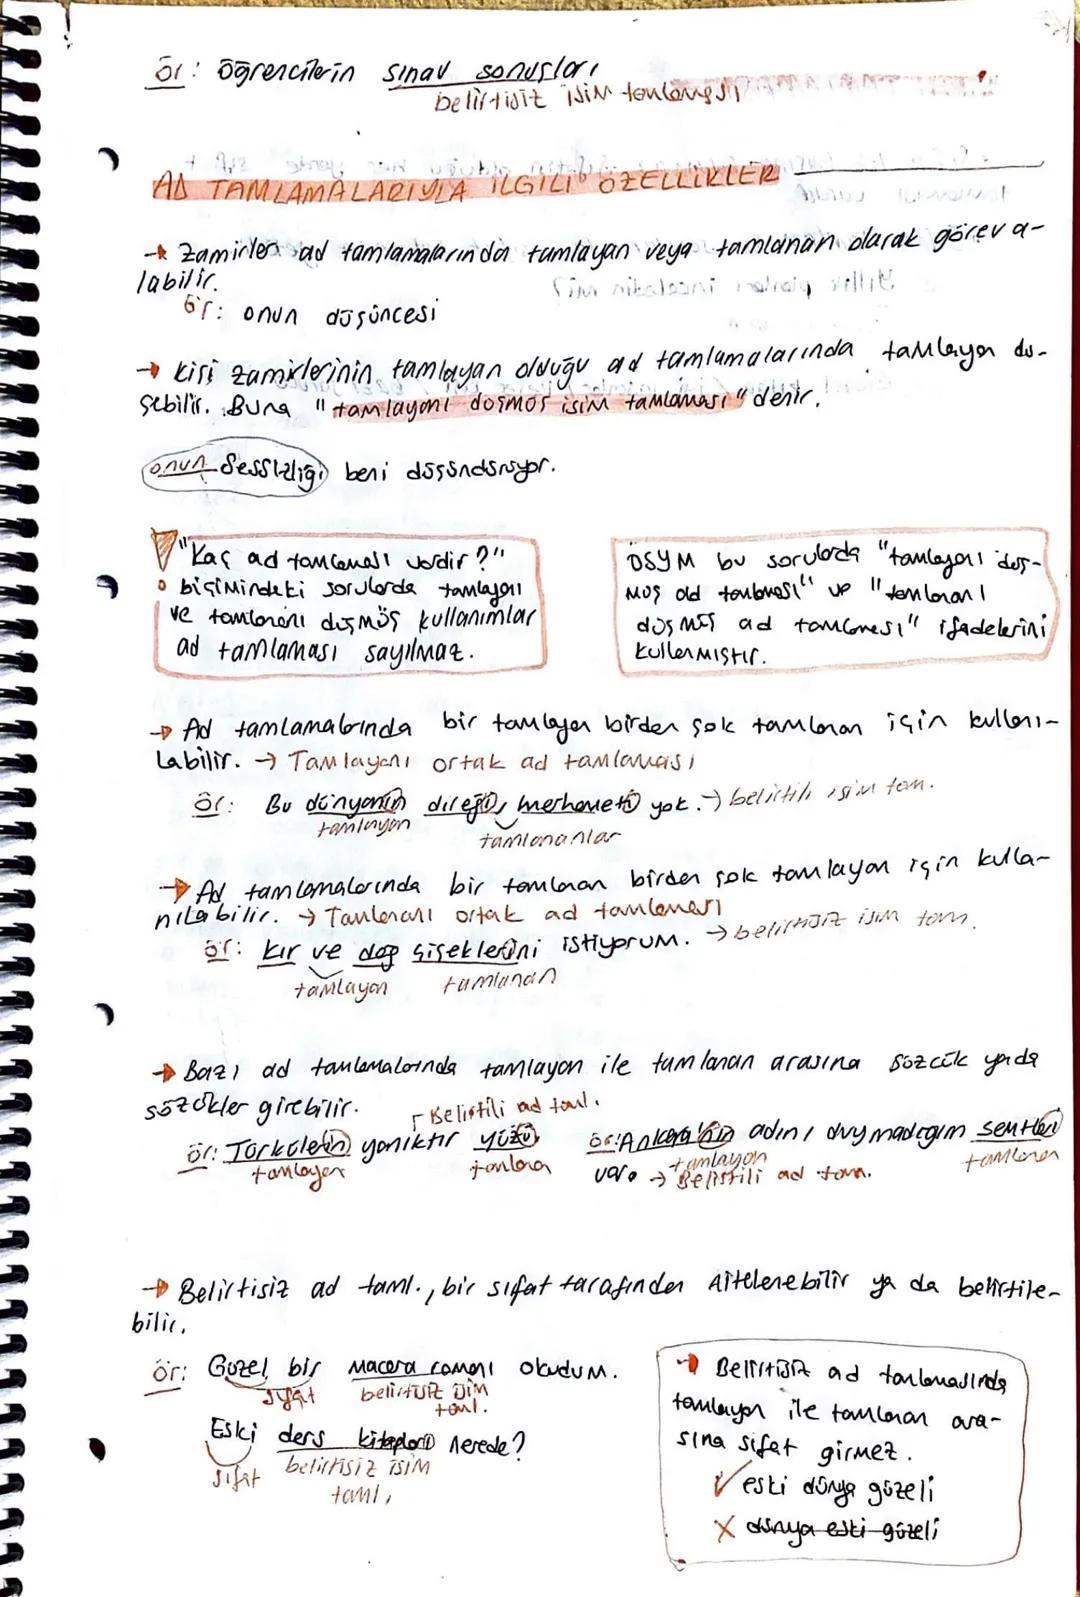 ör: öğrencilerin sınav sonuçları
belirtisiz isim tamlaması
AD TAMLAMALARIYLA İLGİLİ ÖZELLİKLER
→ Zamirler ad tamlamalarında tamlayan veya tamlanan olarak görev a-
labilir.
ör: onun düşüncesi
→ kişi zamirlerinin tamlayan olduğu ad tamlamalarında tamlayan dü-
şebilir. Buna "tamlayanı düşmüş isim tamlaması" denir.
onun sessizliği beni düşündürüyor.
"Kaç ad tamlaması vardır?"
biçimindeki sorularda tamlayanı
ve tamlananı düşmüş kullanımlar
ad tamlaması sayılmaz.
ÖSYM bu sorularda "tamlayanı düş-
müş ad tamlaması" ve "tamlananı
düşmüş ad tamlaması" ifadelerini
kullanmıştır.
→ Ad tamlamalarında bir tamlayan birden çok tamlanan için kullanı-
labilir. → Tamlayanı ortak ad tamlaması
ör: Bu dünyanın direği, merhameti yok. → belirtili isim tam.
tamlayan
tamlananlar
→ Ad tamlamalarında bir tamlanan birden çok tamlayan için kulla-
nılabilir. → Tamlananı ortak ad tamlaması
ör: kır ve dağ çiçeklerini istiyorum. → belirtisiz isim tam.
tamlayan tamlanan
→ Bazı ad tamlamalarında tamlayan ile tamlanan arasına sözcük yada
sözcükler girebilir.
Belirtili ad taml.
ör: Türkülerin yanıktır yüzü
tamlayan tamlanan
ör: Ankara'nın adını duymadığım semtleri
tamlayan tamlanan
var. → Belirtili ad tam.
→ Belirtisiz ad taml., bir sıfat tarafından nitelenebilir ya da belirtile-
bilir.
ör: Güzel bir macera romanı okudum.
sıfat belirtisiz isim
taml.
Eski ders kitapları nerede?
sıfat belirtisiz isim
taml.
→ Belirtisiz ad tamlamasında
tamlayan ile tamlanan ara-
sına sıfat girmez.
✓ eski dünya güzeli
X dünya eski güzeli